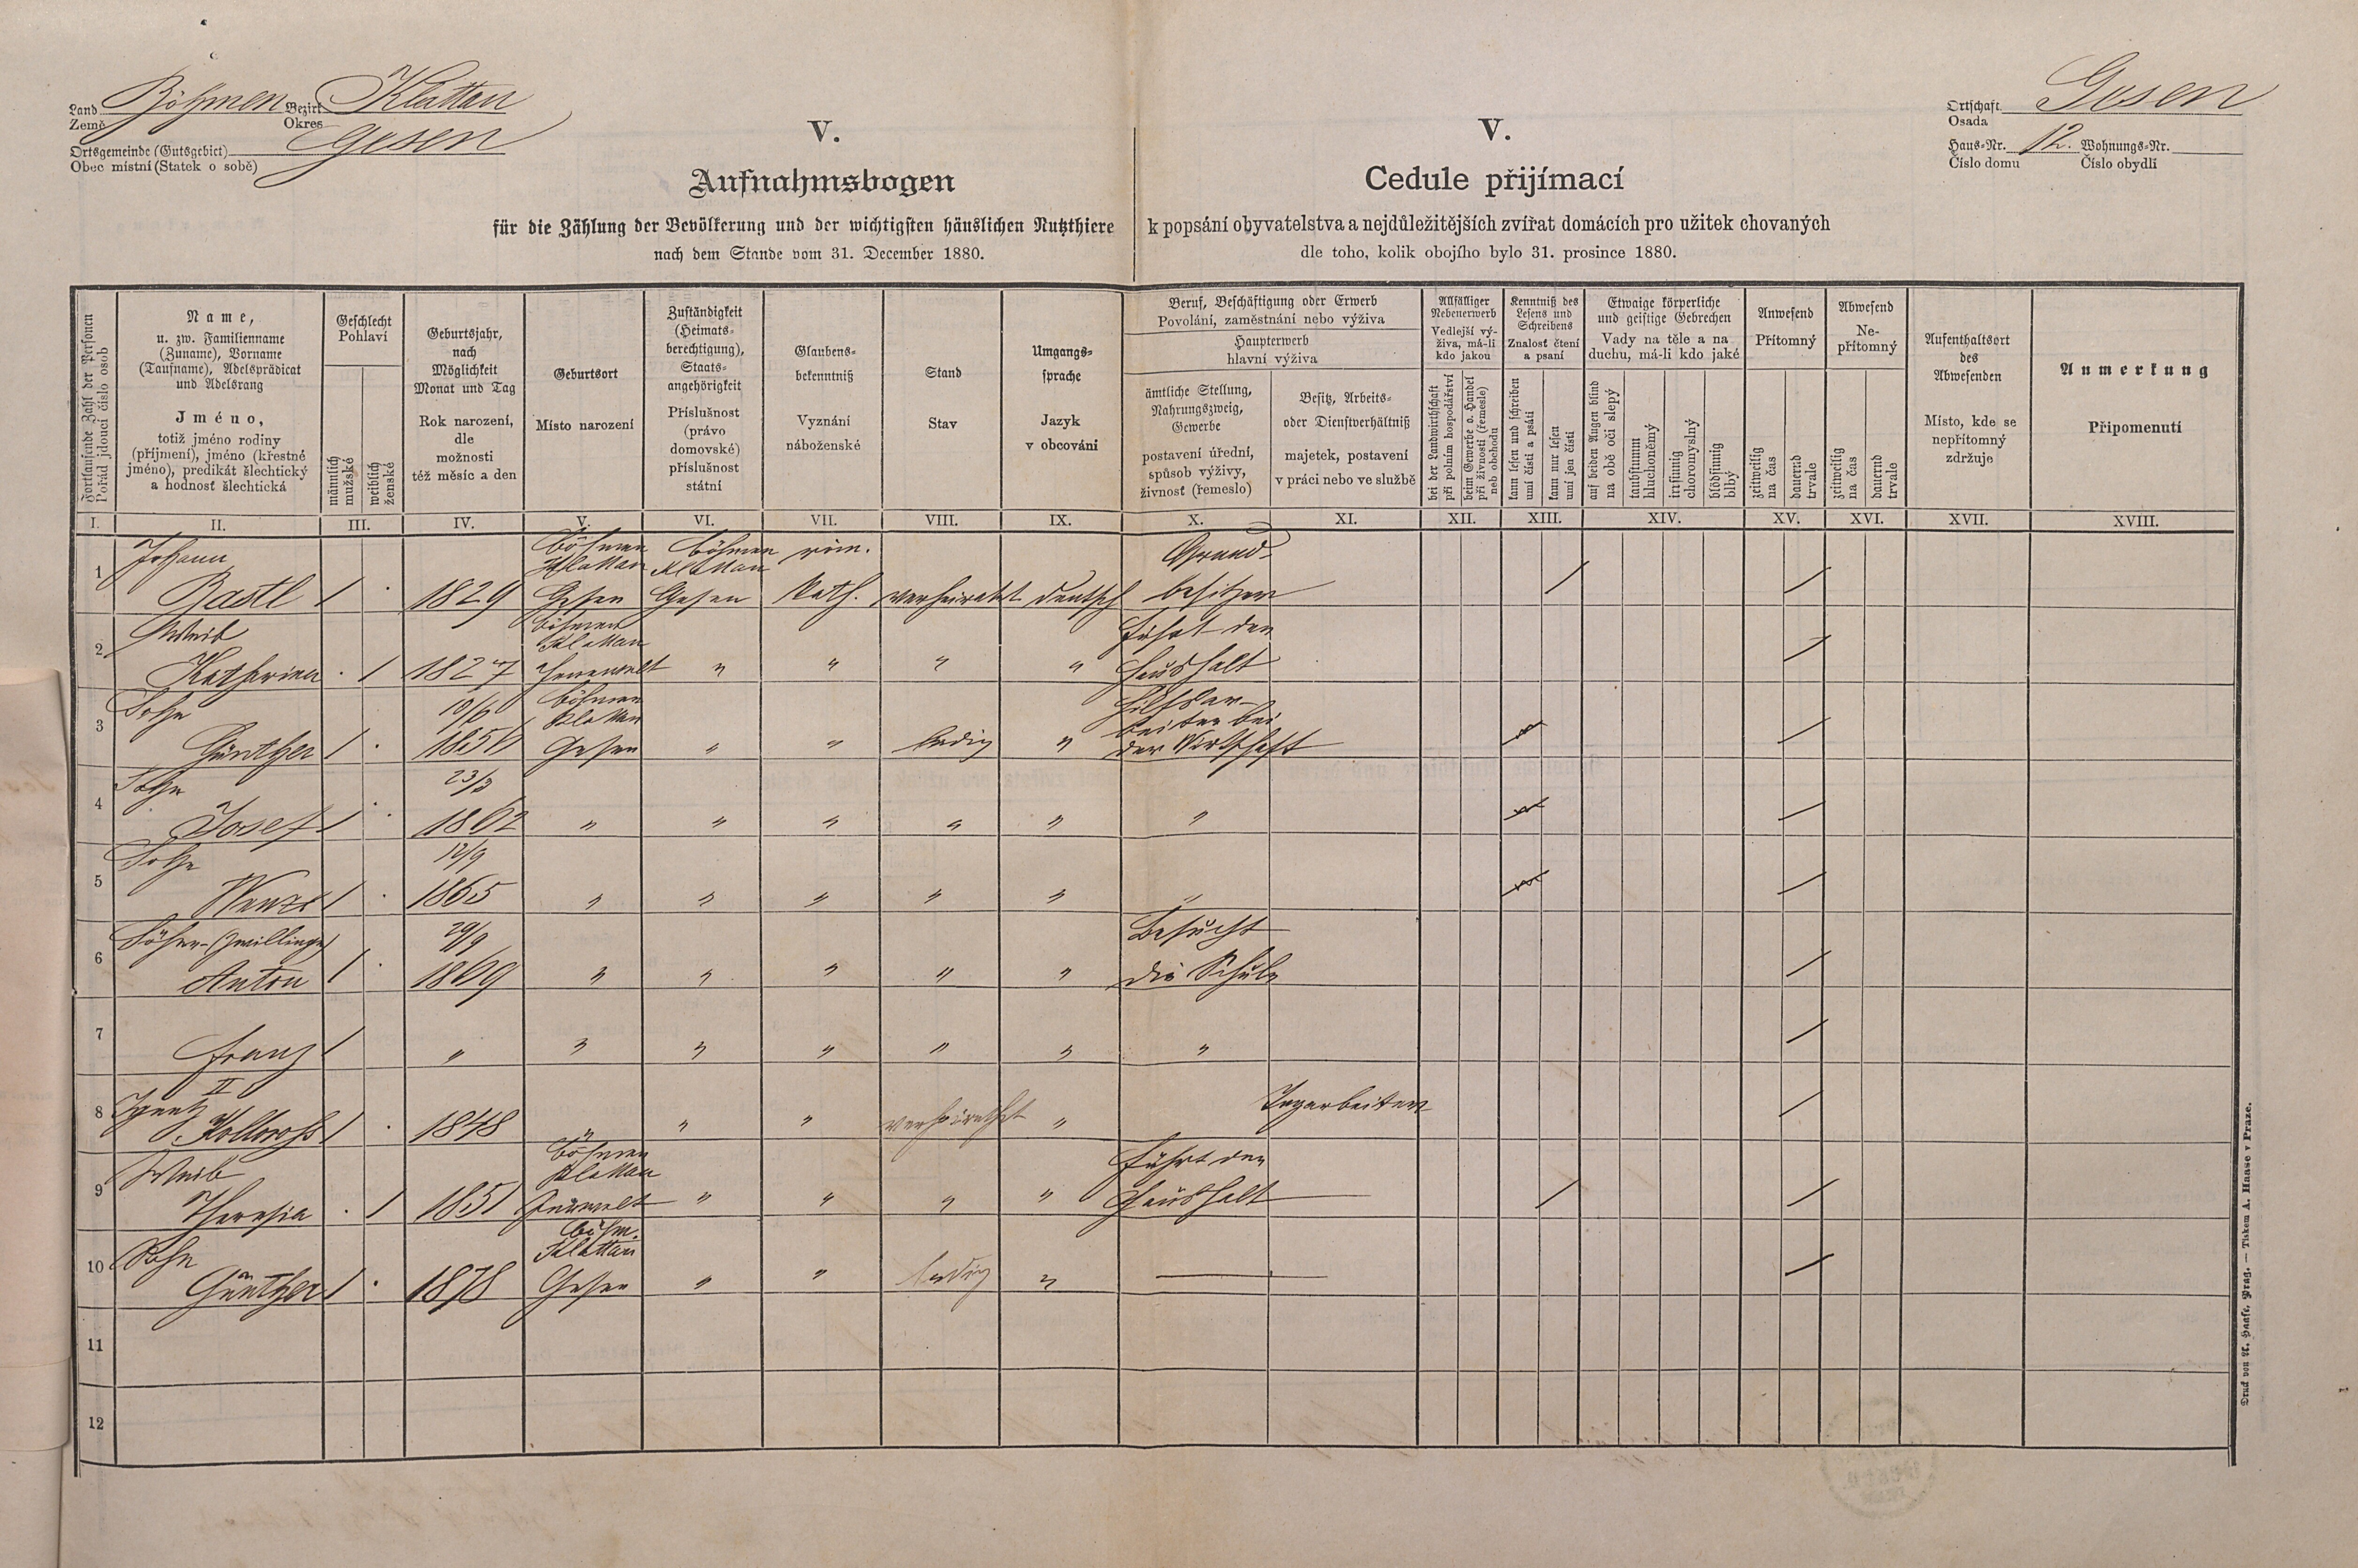 Land Böhmen Bezirk Klattau
Země Okres
Ortsgemeinde (Gutsgebiet) Gesen
Obec místní (Statek o sobě)
V.
Aufnahmsbogen
für die Zählung der Bevölkerung und der wichtigsten häuslichen Nutzthiere
nach dem Stande vom 31. December 1880.
V.
Cedule přijímací
k popsání obyvatelstva a nejdůležitějších zvířat domácích pro užitek chovaných
dle toho, kolik obojího bylo 31. prosince 1880.
Ortschaft Gesen
Osada
Haus-Nr. 12. Wohnungs-Nr.
Číslo domu Číslo obydlí
Fortlaufende Zahl der Personen
Pořád jdoucí číslo osob
Name,
u. zw. Familienname
(Zuname), Vorname
(Taufname), Adelsprädicat
und Adelsrang
Jméno,
totiž jméno rodiny
(příjmení), jméno (křestné
jméno), predikát šlechtický
a hodnost šlechtická
Geschlecht
Pohlaví
männlich
mužské
weiblich
ženské
Geburtsjahr,
nach
Möglichkeit
Monat und Tag
Rok narození,
dle
možnosti
též měsíc a den
Geburtsort
Místo narození
Zuständigkeit
(Heimats-
berechtigung),
Staats-
angehörigkeit
Příslušnost
(právo
domovské)
příslušnost
státní
Glaubens-
bekenntniß
Vyznání
náboženské
Stand
Stav
Umgangs-
sprache
Jazyk
v obcování
Beruf, Beschäftigung oder Erwerb
Povolání, zaměstnání nebo výživa
Haupterwerb
hlavní výživa
ämtliche Stellung,
Nahrungszweig,
Gewerbe
postavení úřední,
spůsob výživy,
živnost (řemeslo)
Besitz, Arbeits-
oder Dienstverhältniß
majetek, postavení
v práci nebo ve službě
Allfälliger
Nebenerwerb
Vedlejší vý-
živa, má-li
kdo jakou
bei der Landwirthschaft
při polním hospodářství
beim Gewerbe o. Handel
při živnosti (řemesle)
neb obchodu
Kenntniß des
Lesens und
Schreibens
Znalost čtení
a psaní
kann lesen und schreiben
umí čísti a psáti
kann nur lesen
umí jen čísti
Etwaige körperliche
und geistige Gebrechen
Vady na těle a na
duchu, má-li kdo jaké
auf beiden Augen blind
na obě oči slepý
taubstumm
hluchoněmý
irrsinnig
choromyslný
blödsinnig
blbý
Anwesend
Přítomný
zeitweilig
na čas
dauernd
trvale
Abwesend
Ne-
přítomný
zeitweilig
na čas
dauernd
trvale
Aufenthaltsort
des
Abwesenden
Místo, kde se
nepřítomný
zdržuje
Anmerkung
Připomenutí
I. II. III. IV. V. VI. VII. VIII. IX. X. XI. XII. XIII. XIV. XV. XVI. XVII. XVIII.
1 Johann Böhmen Böhmen röm. Grund-
Klattau Klattau
Bastl 1 1829 Gesen Gesen kath. verheiratet deutsch besitzer
2 Weib Böhmen führt den
Klattau
Katharina 1 1827 " " " " Haushalt
3 Sohn 10/6 Böhmen Hilfsar-
Klattau beiter bei
Günther 1 Gesen " " ledig " der Wirtschaft
4 Sohn 23/3
Josef 1 1862 " " " " " "
5 Sohn 12/9
Wenzl 1 1865 " " " " " "
6 Söhne (Zwillinge) 29/9 Besucht
Anton 1 1869 " " " " " die Schule
7
Franz 1 " " " " " " "
II
8 Ignatz Tagarbeiter
Kollross 1 1848 " " " verheirathet "
9 Weib Böhmen führt den
Klattau
Theresia 1 1851 " " " " Haushalt
10 Sohn Böhm.
Klattau
Günther 1 1878 Gesen " " ledig "
11
12
Druck von A. Haase, Prag. — Tiskem A. Haase v Praze.